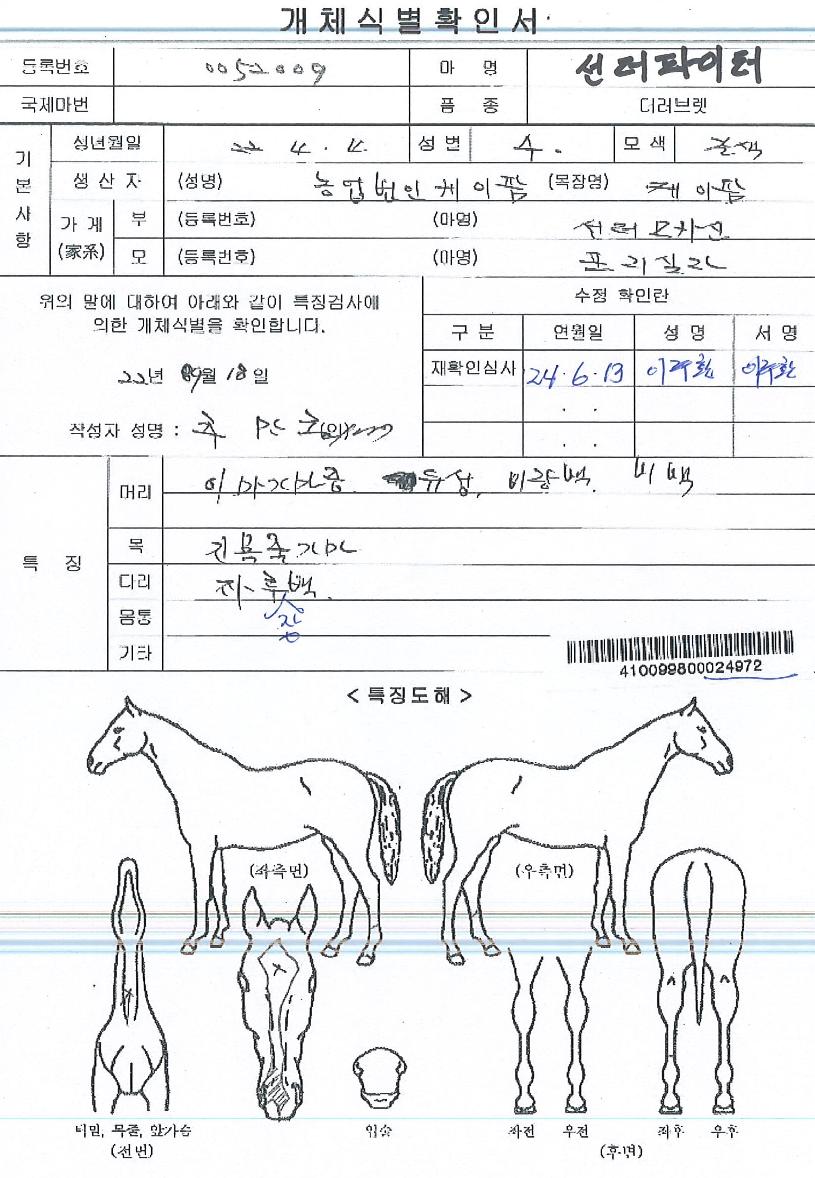 개체식별확인서
등록번호 0052009 마명 선더파이터
국제마번 품종 더러브렛
기본사항
생년월일 22 4. 4. 성별 수. 모색 갈색
생산자 (성명) 농업법인케이팜 (목장명) 케이팜
가계(家系) 부 (등록번호) (마명) 선더모카신
모 (등록번호) (마명) 프리실라
위의 말에 대하여 아래와 같이 특징검사에
의한 개체식별을 확인합니다.
22년 09월 18일
작성자 성명 : (인)
수정 확인란
구분 연월일 성명 서명
재확인심사 24.6.13
. .
. .
특징
머리 이마가마중 유성, 비량백. 비백
목 진목줄가마
다리
몸통
기타
410099800024972
< 특징도해 >
(좌측면) (우측면)
턱밑, 목줄, 앞가슴
(전면)
입술
좌전 우전 좌후 우후
(후면)